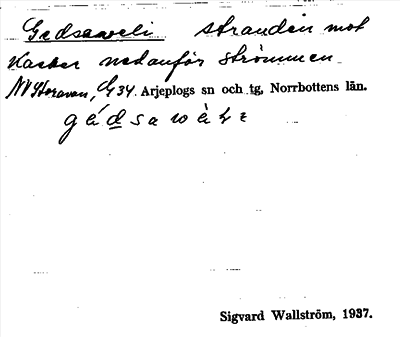 Gedsaaveli stranden mot
Kasker nedanför strömmen.
NV Storavan, G 34. Arjeplogs sn och tg, Norrbottens län.
Sigvard Wallström, 1937.